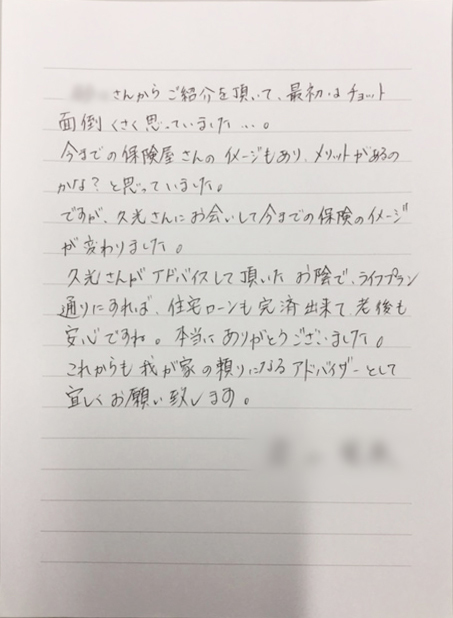 さんからご紹介を頂いて、最初はチョット
面倒くさく思っていました…。
今までの保険屋さんのイメージもあり、メリットがあるの
かな？と思っていました。
ですが、久光さんにお会いして今までの保険のイメージ
が変わりました。
久光さんがアドバイスして頂いたお陰で、ライフプラン
通りにすれば、住宅ローンも完済出来て老後も
安心ですね。本当にありがとうございました。
これからも我が家の頼りになるアドバイザーとして
宜しくお願い致します。